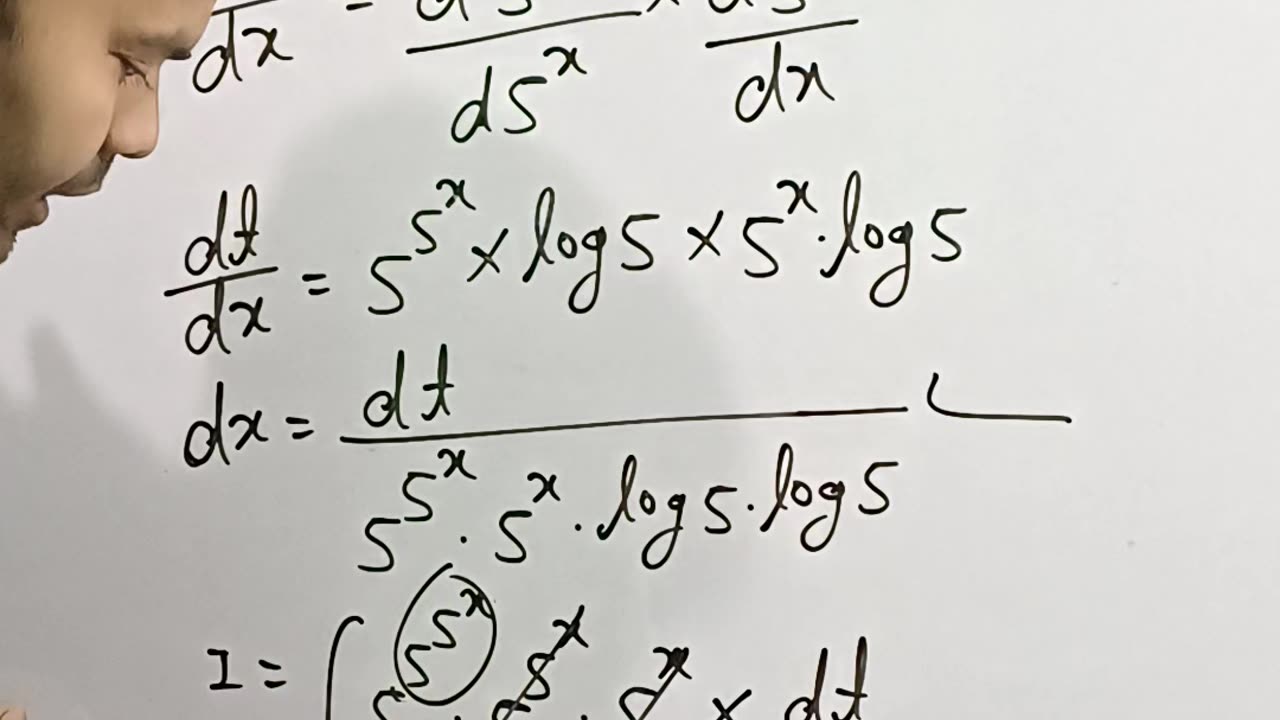 dx = d5 / d5^x × d5 / dx
dt/dx = 5^5^x × log 5 × 5^x · log 5
dx = dt / 5^5^x · 5^x · log 5 · log 5
I = ∫ 5^5^5^x · 5^5^x · 5^x × dt